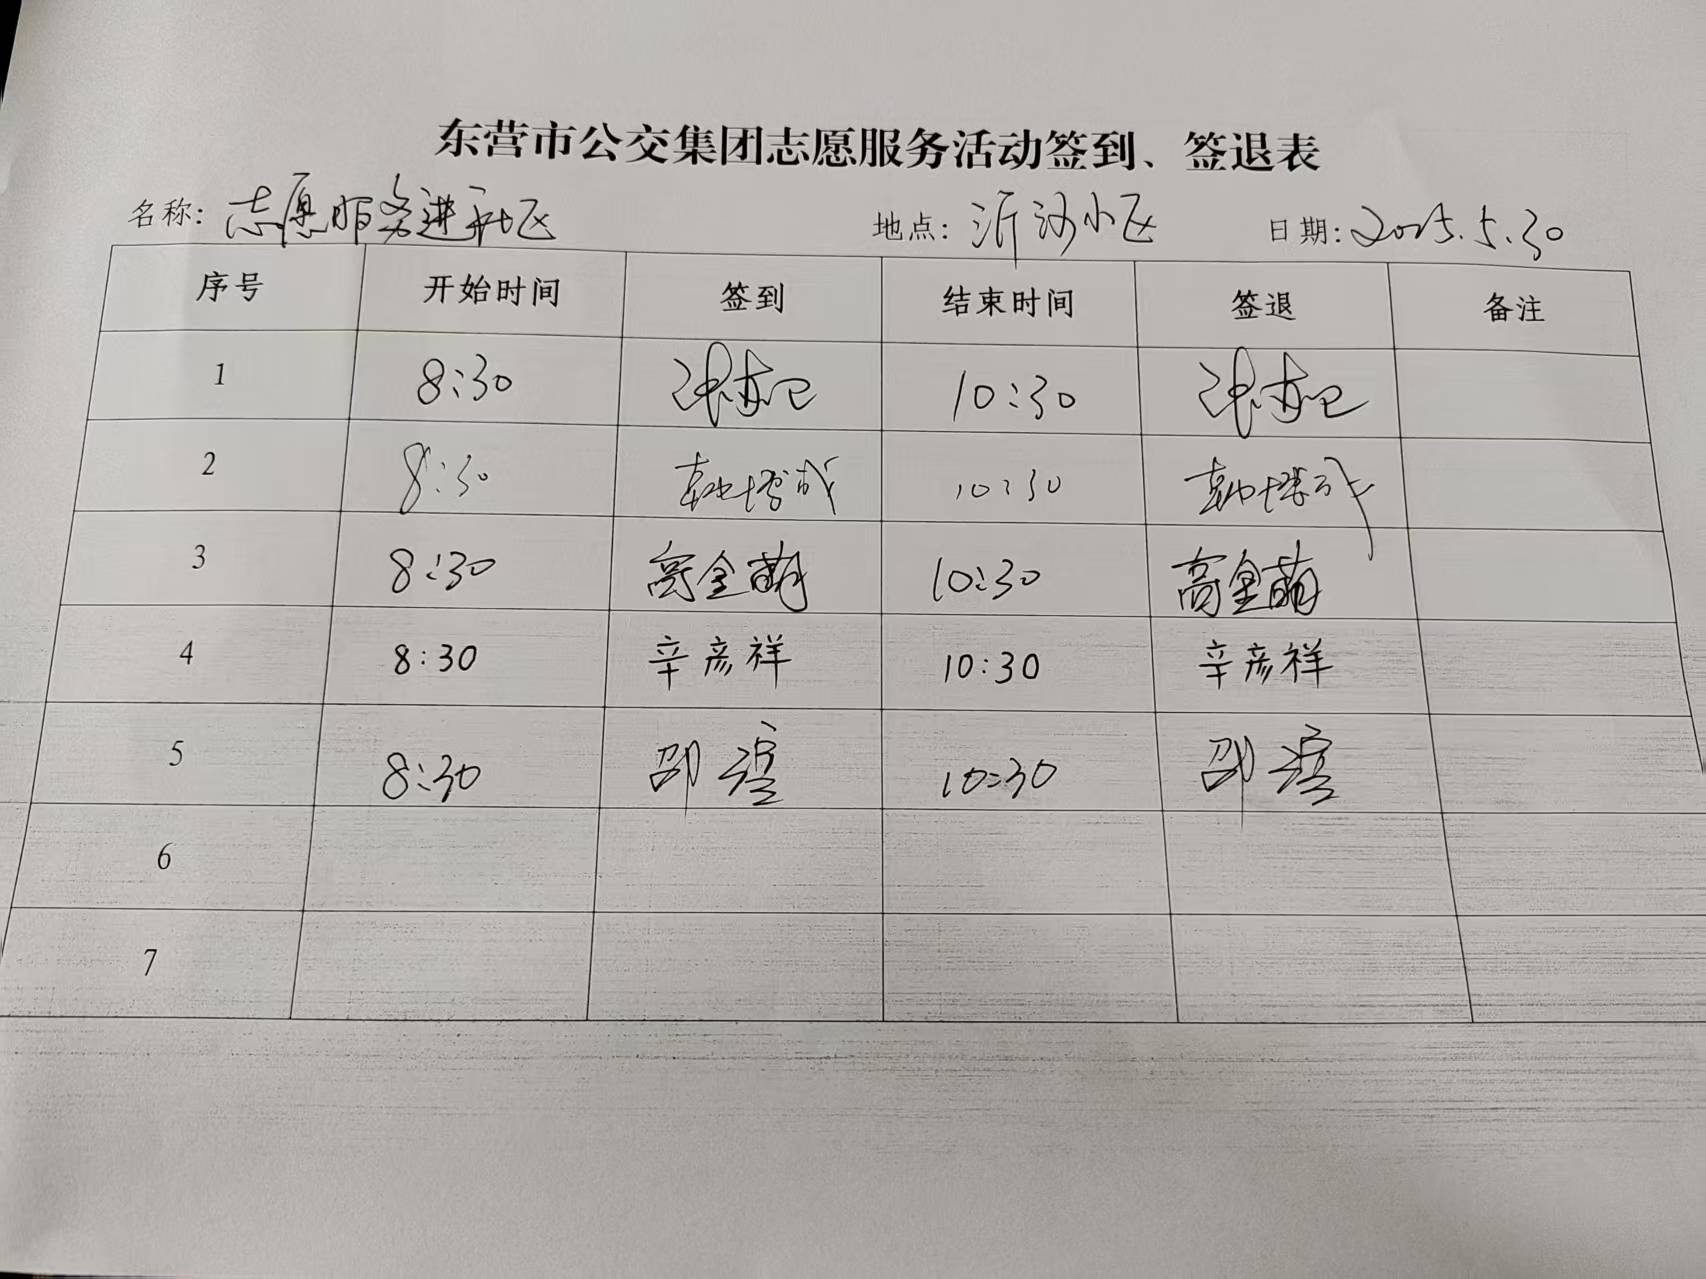 东营市公交集团志愿服务活动签到、签退表
名称: 志愿服务进社区 地点: 沂河小区 日期: 2025.5.30
序号 开始时间 签到 结束时间 签退 备注
1 8:30 10:30
2 8:30 10:30
3 8:30 高金萌 10:30 高金萌
4 8:30 辛彦祥 10:30 辛彦祥
5 8:30 邵 10:30 邵
6
7